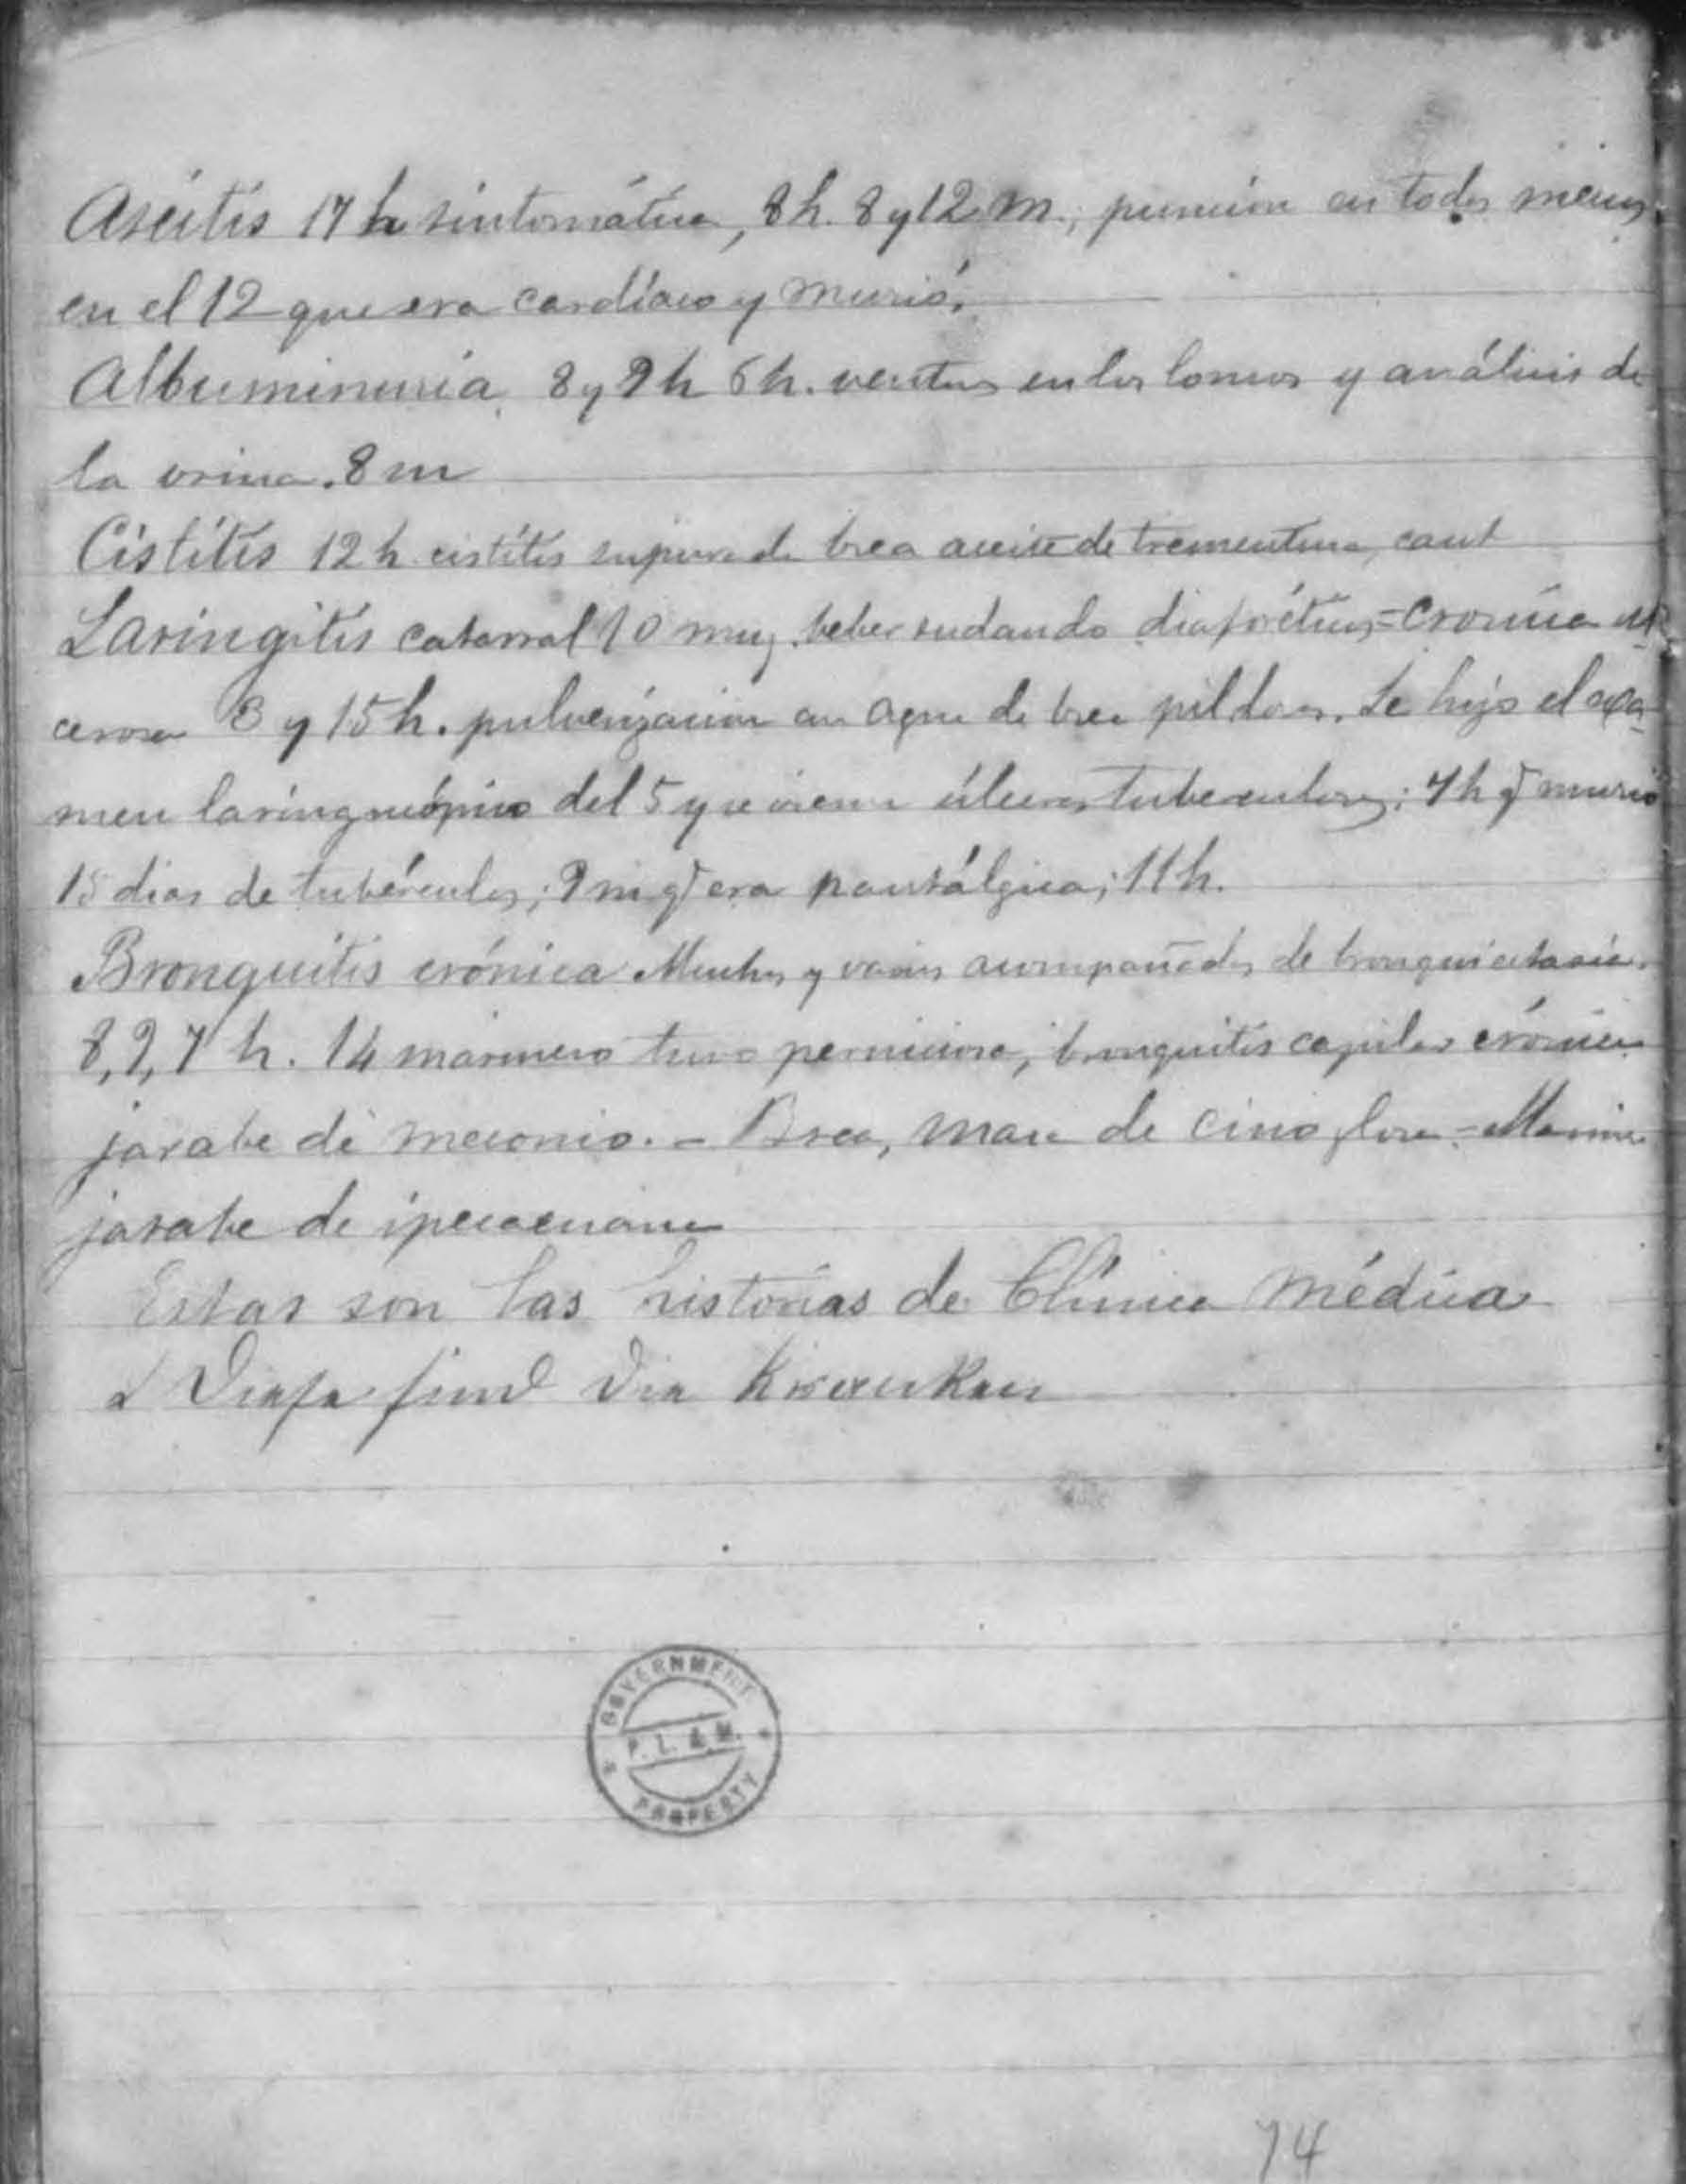 Ascitis 17 h sintomática, 8 h. 8 y 12 m., punción en todos menos
en el 12 que era cardíaco y murió.
Albuminuria 8 y 9 h 6 h. ventosas en los lomos y análisis de
la orina. 8 m
Cistitis 12 h cistitis brea aceite de trementina, caut
Laringitis catarral 10 muj. beber sudando diaforéticos = Cronica ul
cerosa 8 y 15 h. pulverizacion con agua de brea pildoras. Se hizo el exa-
men laringoscópico del 5 y se vieron úlceras tuberculosas; 7 h q murió
15 dias de tubérculos; 9 m q era nostálgica; 11 h.
Bronquitis crónica Muchos y varios acompañados de bronquiectasia.
8, 9, 7 h. 14 marinero tuvo perniciosa; bronquitis capilar crónica
jarabe de meconio. - Brea, de cinoglosa - Marine
jarabe de ipecacuana
Estas son las historias de Clínica Médica
Diese sind die Kranken
GOVERNMENT
P. L. & M.
PROPERTY
74